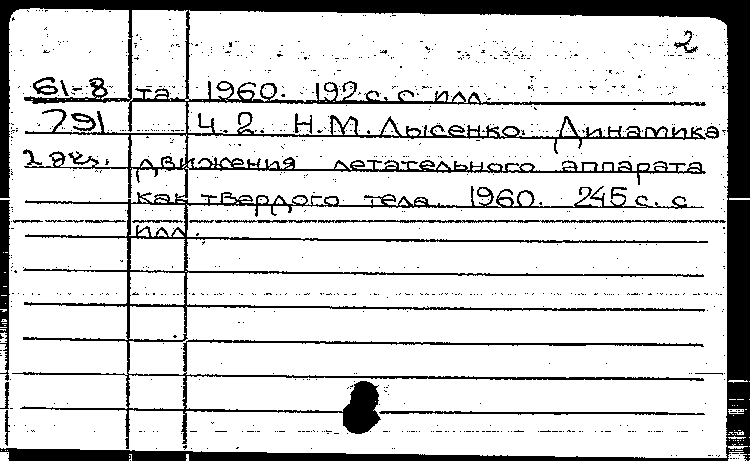 2
61-8 та. 1960. 192 с. с илл.
791 Ч. 2. Н.М. Лысенко. Динамика
2 экз. движения летательного аппарата
как твердого тела. 1960. 245 с. с
илл.